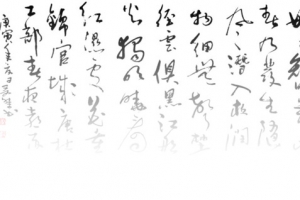 春乃發生隨
風潛入夜潤
物細無聲野
徑雲俱黑江船
火獨明曉看
紅濕處花重
錦官城唐杜
工部春夜喜雨
庚寅